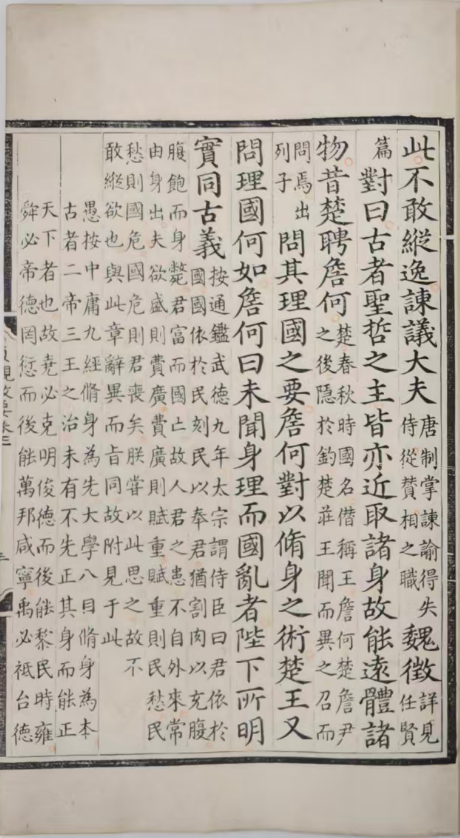 此不敢縱逸諫議大夫唐制掌諫諭得失侍從贊相之職魏徵詳見任賢
篇對曰古者聖哲之主皆亦近取諸身故能遠體諸
物昔楚聘詹何楚春秋時國名僭稱王詹何楚詹尹之後隱於釣楚莊王聞而異之召而
問焉出列子問其理國之要詹何對以脩身之術楚王又
問理國何如詹何曰未聞身理而國亂者陛下所明
實同古義按通鑑武德九年太宗謂侍臣曰君依於國國依於民刻民以奉君猶割肉以充腹
腹飽而身斃君富而國亡故人君之患不自外來常
由身出夫欲盛則費廣費廣則賦重賦重則民愁民
愁則國危國危則君喪矣朕嘗以此思之故不
敢縱欲也與此章辭異而旨同故附見于此
愚按中庸九經脩身為先大學八目脩身為本
古者二帝三王之治未有不先正其身而能正
天下者也故堯必克明俊德而後能黎民時雍
舜必帝德罔愆而後能萬邦咸寧禹必祗台德